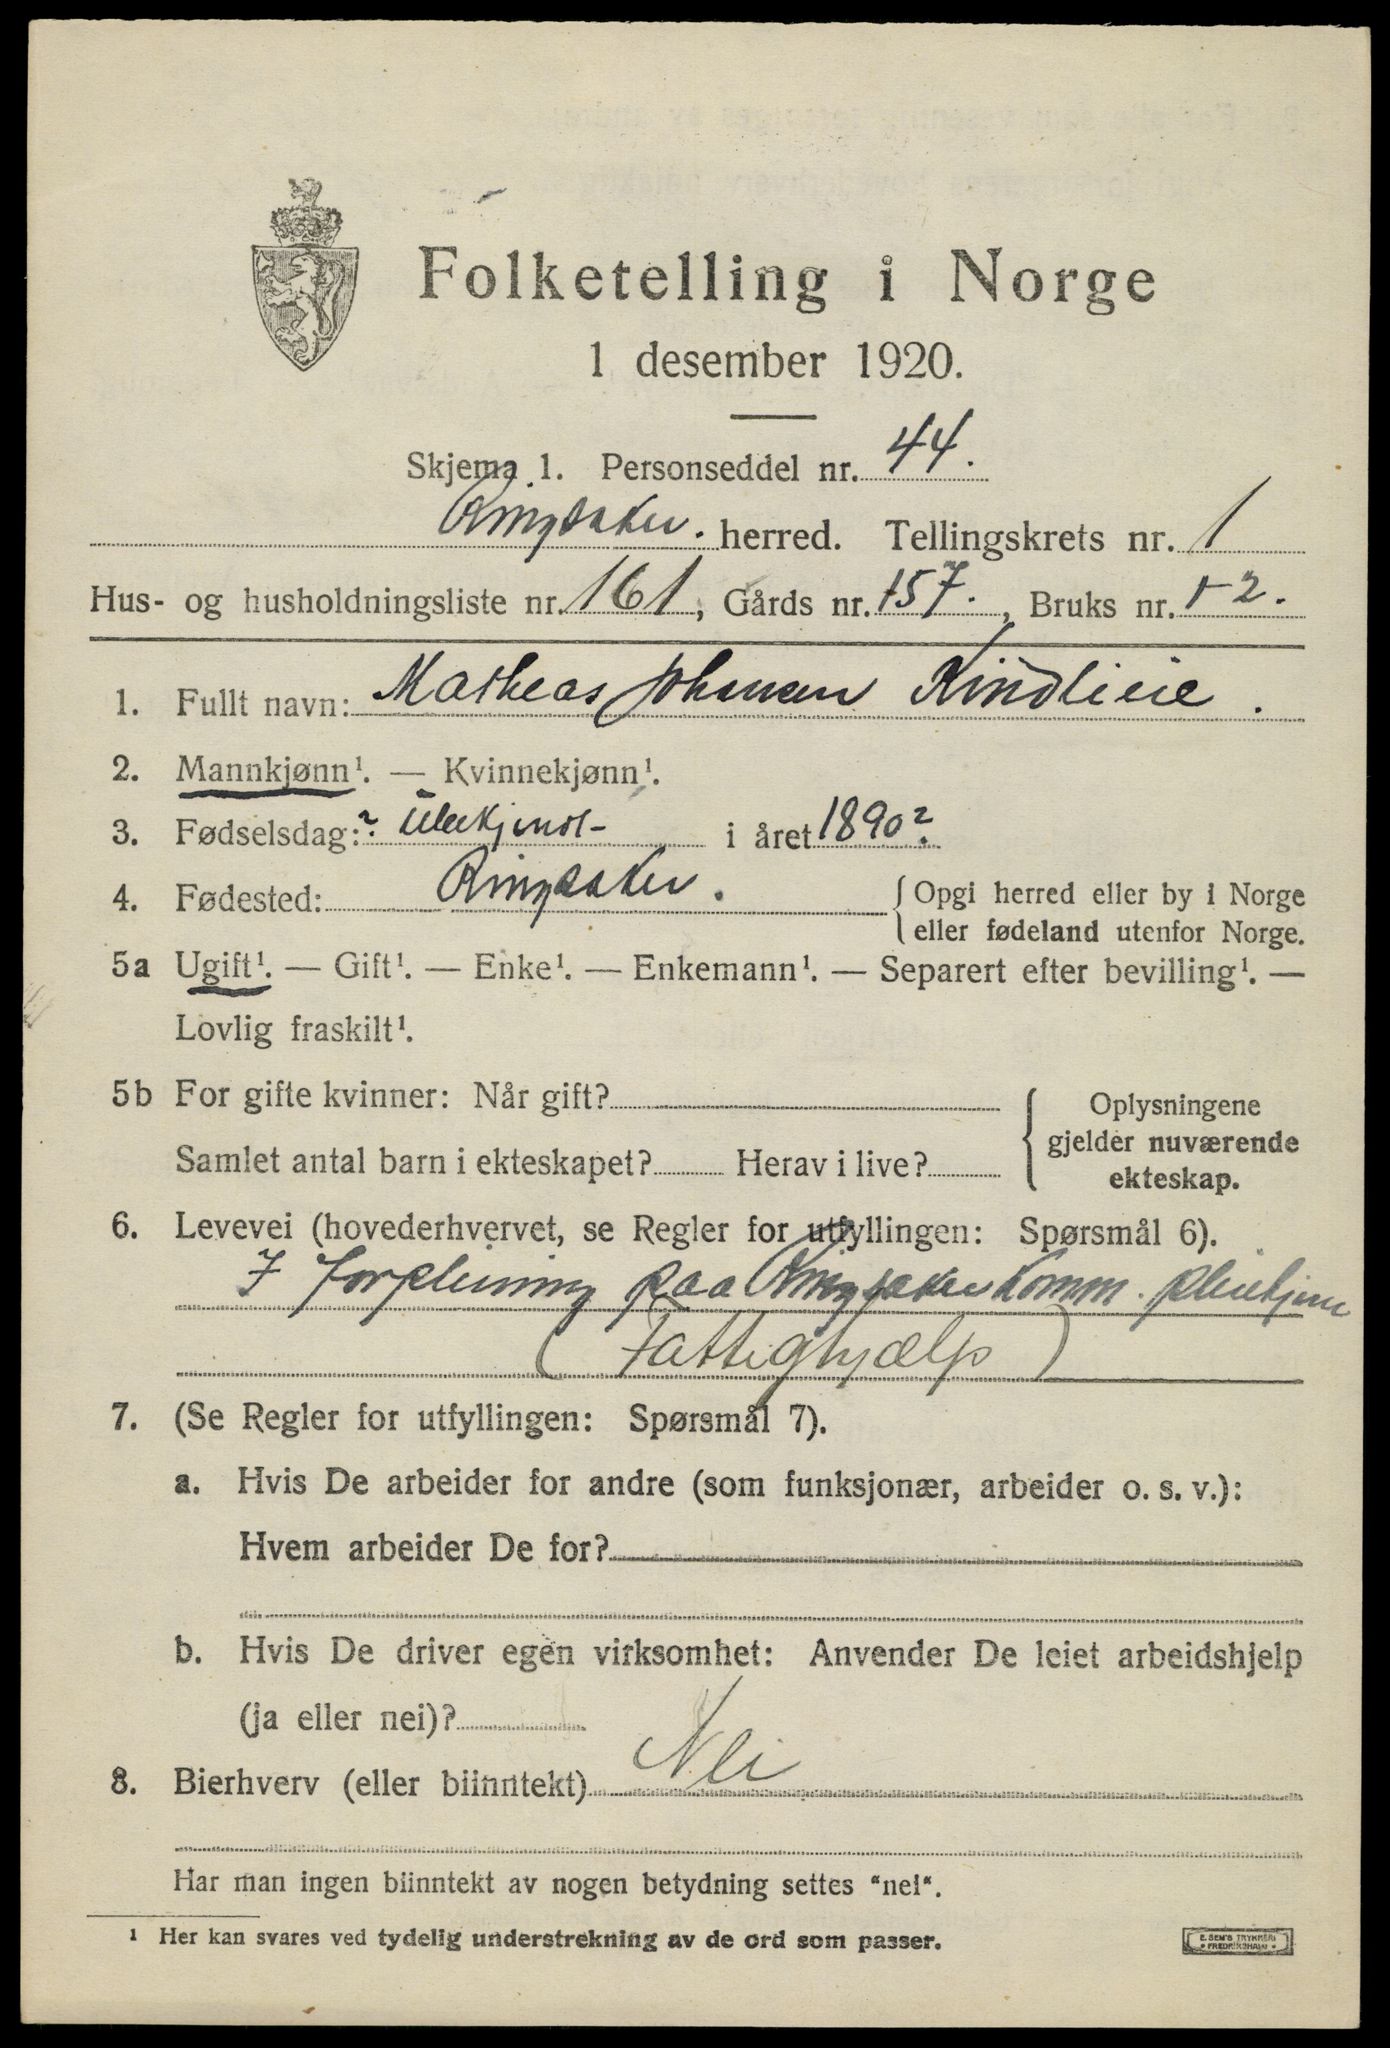 Folketelling i Norge
1 desember 1920.
Skjema 1. Personseddel nr. 44.
Ringsaker. herred. Tellingskrets nr. 1
Hus- og husholdningsliste nr. 161, Gårds nr. 157., Bruks nr. 12.
1. Fullt navn: Matheas Johansen Kindlieie.
2. Mannkjønn¹. — Kvinnekjønn¹.
3. Fødselsdag: ? Ubekjendt i året 1890?
4. Fødested: Ringsaker. Opgi herred eller by i Norge
eller fødeland utenfor Norge.
5a Ugift¹. — Gift¹. — Enke¹. — Enkemann¹. — Separert efter bevilling¹. —
Lovlig fraskilt¹.
5b For gifte kvinner: Når gift?
Samlet antal barn i ekteskapet? Herav i live?
Oplysningene
gjelder nuværende
ekteskap.
6. Levevei (hovederhvervet, se Regler for utfyllingen: Spørsmål 6).
I forpleining paa Ringsaker Komm. pleiehjem
(Fattighjælp)
7. (Se Regler for utfyllingen: Spørsmål 7).
a. Hvis De arbeider for andre (som funksjonær, arbeider o. s. v.):
Hvem arbeider De for?
b. Hvis De driver egen virksomhet: Anvender De leiet arbeidshjelp
(ja eller nei)?
8. Bierhverv (eller biinntekt) Nei
Har man ingen biinntekt av nogen betydning settes "nei".
¹ Her kan svares ved tydelig understrekning av de ord som passer.
E. SEM'S TRYKKERI
FREDRIKSHALD